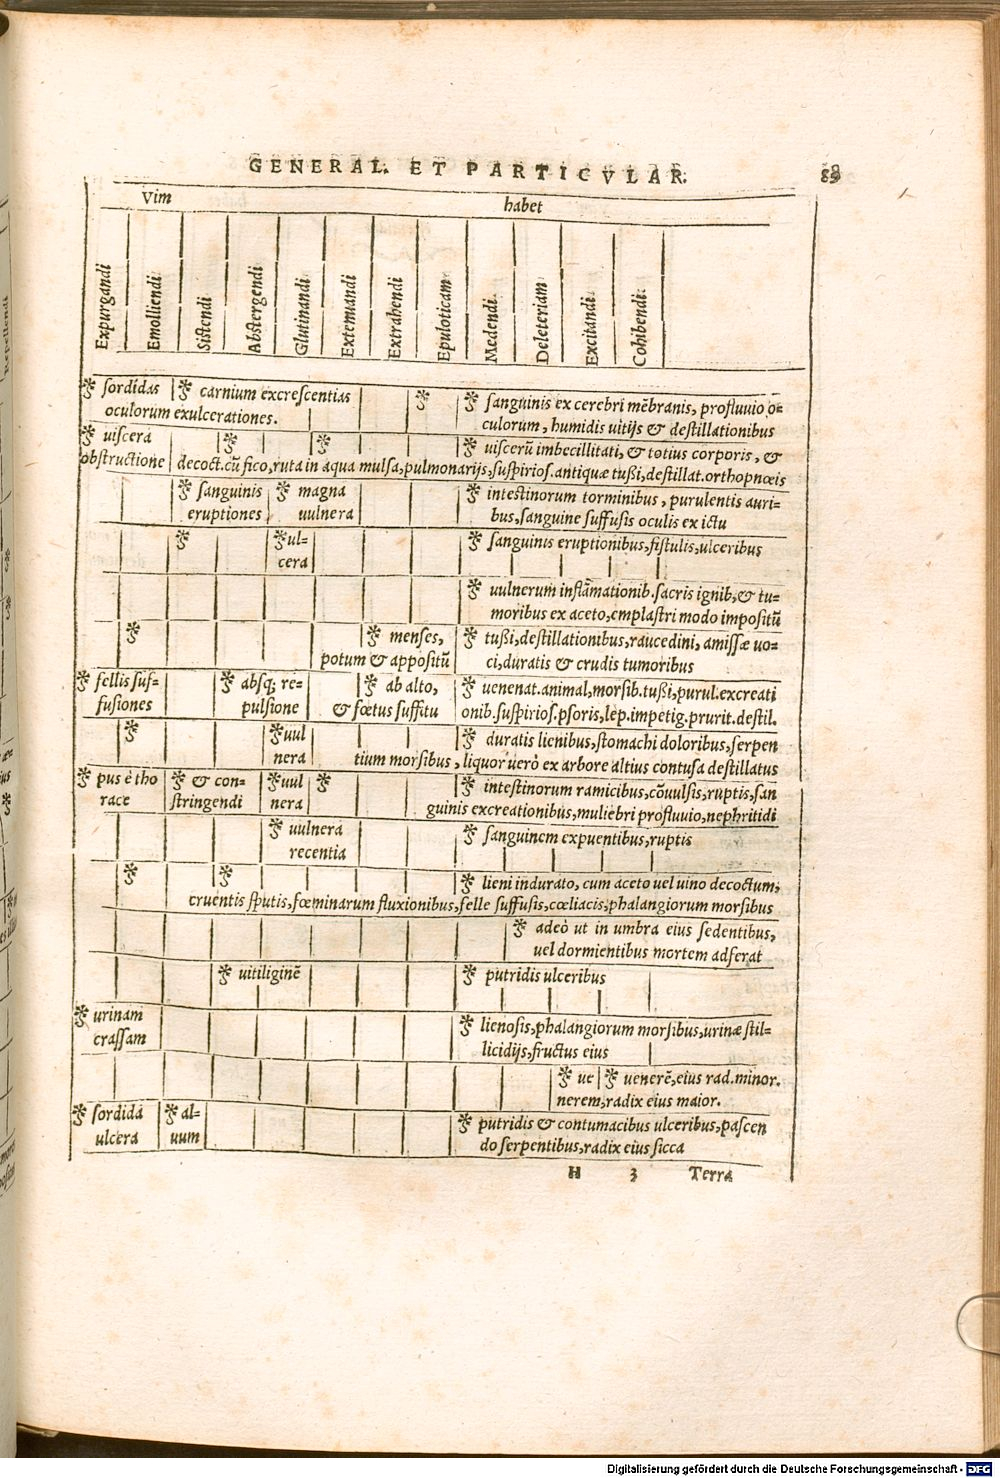 GENERAL. ET PARTICVLAR. 89
Vim habet
Expurgandi
Emolliendi
Sistendi
Abstergendi
Glutinandi
Extenuandi
Extrahendi
Epuloticam
Medendi
Deleteriam
Excitandi
Cohibendi
sordidas carnium excrescentias sanguinis ex cerebri mēbranis, profluuio o-
oculorum exulcerationes. culorum, humidis uitijs & destillationibus
uiscera uiscerū imbecillitati, & totius corporis, &
obstructione decoct. cū fico, ruta in aqua mulsa, pulmonarijs, suspirios. antiquæ tußi, destillat. orthopnœis
sanguinis magna intestinorum torminibus, purulentis auri-
eruptiones uulnera bus, sanguine suffusis oculis ex ictu
ul- sanguinis eruptionibus, fistulis, ulceribus
cera
uulnerum inflāmationib. sacris ignib, & tu-
moribus ex aceto, emplastri modo impositū
menses, tußi, destillationibus, raucedini, amissæ uo-
potum & appositū ci, duratis & crudis tumoribus
fellis suf- absq; re- ab alto, uenenat. animal, morsib. tußi, purul. excreati
fusiones pulsione & fœtus suffitu onib. suspirios. psoris, lep. impetig. prurit. destil.
uul duratis lienibus, stomachi doloribus, serpen
nera tium morsibus, liquor uerò ex arbore altius contusa destillatus
pus è tho & con- uul intestinorum ramicibus, cōuulsis, ruptis, san
race stringendi nera guinis excreationibus, muliebri profluuio, nephritidi
uulnera sanguinem expuentibus, ruptis
recentia
lieni indurato, cum aceto uel uino decoctum,
cruentis sputis, fœminarum fluxionibus, felle suffusis, cœliacis, phalangiorum morsibus
adeò ut in umbra eius sedentibus,
uel dormientibus mortem adferat
uitiliginē putridis ulceribus
urinam lienosis, phalangiorum morsibus, urinæ stil-
crassam licidijs, fructus eius
ue uenerē, eius rad. minor.
nerem, radix eius maior.
sordida al- putridis & contumacibus ulceribus, pascen
ulcera uum do serpentibus, radix eius sicca
H 3 Terra
Repellendi
Digitalisierung gefördert durch die Deutsche Forschungsgemeinschaft - DFG